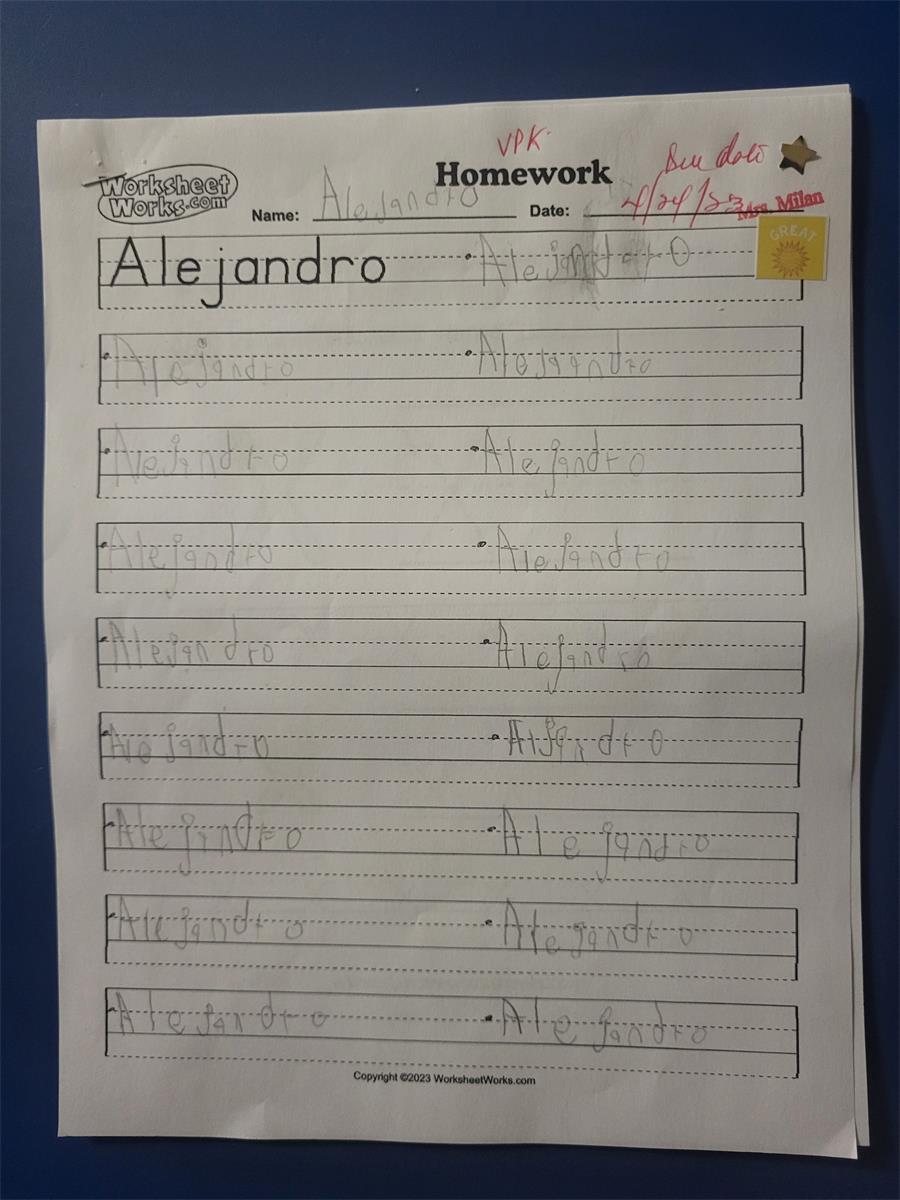 VPK
Worksheet Works.com Homework
Name: Alejandro Date: 4/24/23 Mrs. Milan
GREAT
Alejandro Alejandro
Alejandro Alejandro
Alejandro Alejandro
Alejandro Alejandro
Alejandro Alejandro
Alejandro Aljandro
Alejndro Alejandro
Alejandro Alejandro
Alejandro Alejandro
Copyright ©2023 WorksheetWorks.com